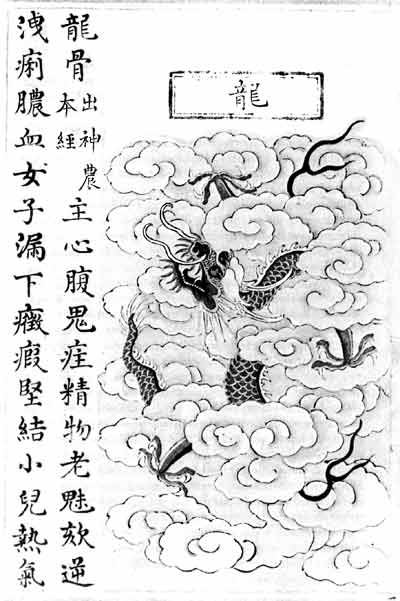 龍
龍骨出神農本經主心腹鬼疰精物老魅欬逆
洩痢膿血女子漏下癥瘕堅結小兒熱氣